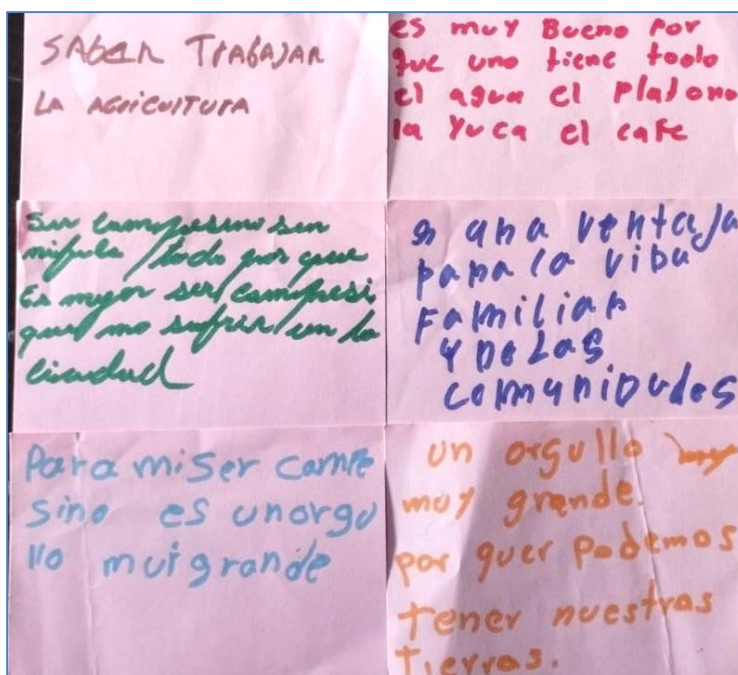 SABER TRABAJAR
LA AGRICULTURA
es muy Bueno por
que uno tiene todo
el agua el platono
la yuca el cafe
Ser campesino sin
nifica todo por que
Es mejor ser campesi
que no sufrir en la
ciudad
es una ventaja
para la vida
Familiar
y DE LAS
comunidades
Para mi ser campe
sino es un orgu
llo mui grande
un orgullo
muy grande
por quer podemos
tener nuestras
Tierras.